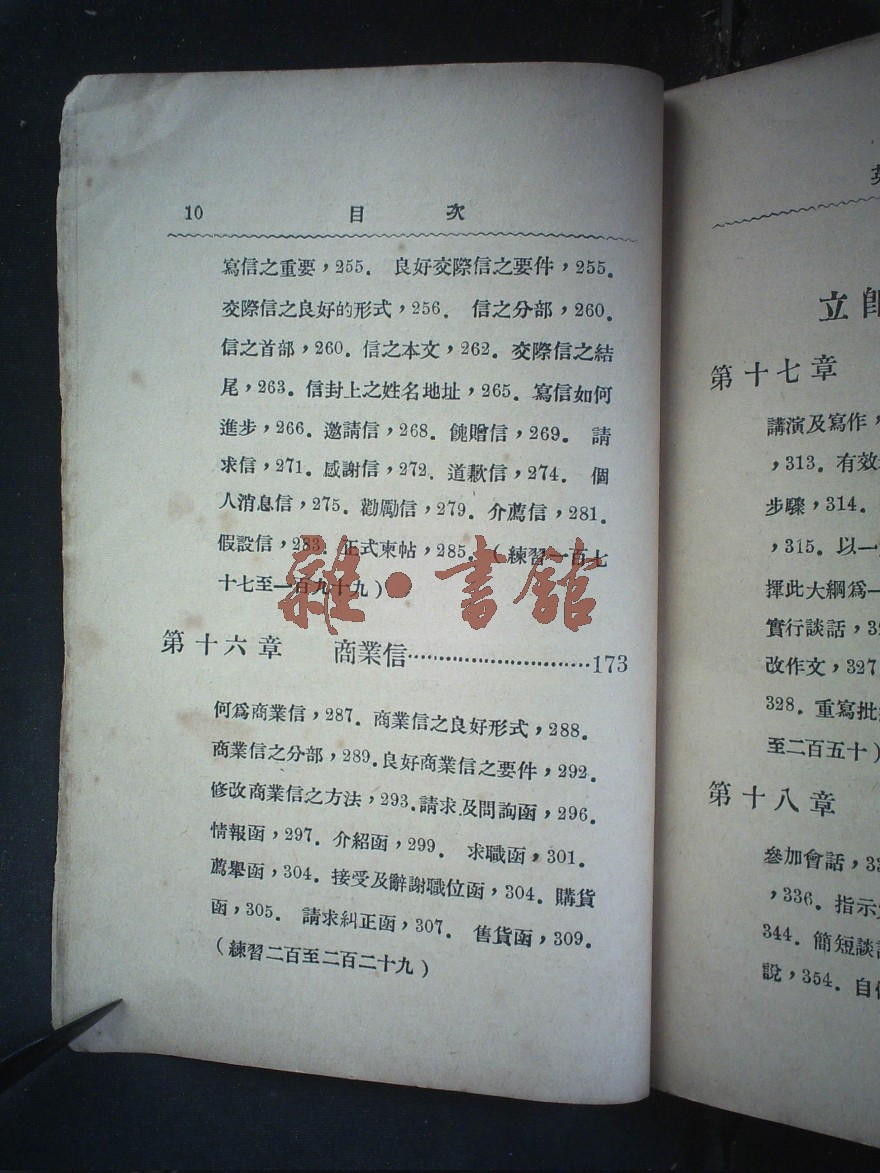 10 目 次
寫信之重要，255． 良好交際信之要件，255．
交際信之良好的形式，256． 信之分部，260．
信之首部，260．信之本文，262．交際信之結
尾，263．信封上之姓名地址，265．寫信如何
進步，266．邀請信，268．餽贈信，269． 請
求信，271．感謝信，272．道歉信，274． 個
人消息信，275．勸勵信，279．介薦信，281．
假設信，283．正式柬帖，285．（練習一百七
十七至一百九十九）
雜·書館
第十六章 商業信…………………………173
何爲商業信，287．商業信之良好形式，288．
商業信之分部，289．良好商業信之要件，292．
修改商業信之方法，293．請求及問詢函，296．
情報函，297．介紹函，299． 求職函，301．
薦舉函，304．接受及辭謝職位函，304．購貨
函，305． 請求糾正函，307． 售貨函，309．
（練習二百至二百二十九）
立
第十七章
講演及寫作，
，313．有效
步驟，314．
，315．以一
揮此大綱爲一
實行談話，32
改作文，327
328．重寫批
至二百五十）
第十八章
參加會話，33
，336．指示
344．簡短談
說，354．自